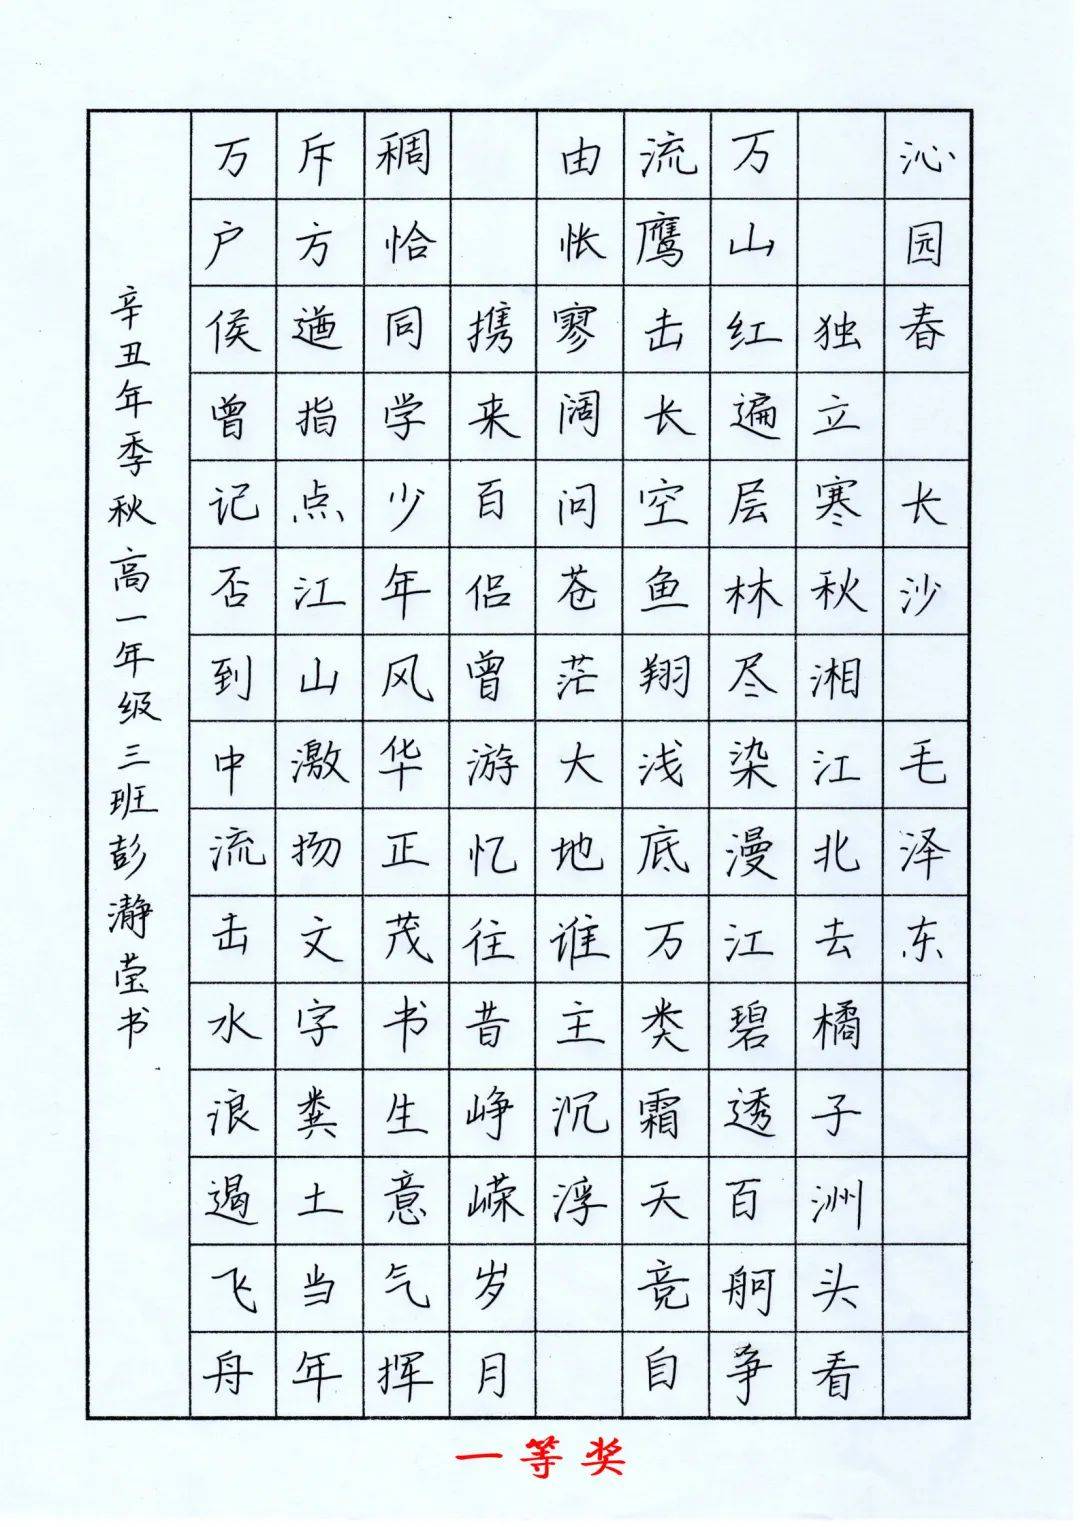 沁园春 长沙 毛泽东
独立寒秋湘江北去橘子洲头看
万山红遍层林尽染漫江碧透百舸争
流鹰击长空鱼翔浅底万类霜天竞自
由怅寥阔问苍茫大地谁主沉浮
携来百侣曾游忆往昔峥嵘岁月
稠恰同学少年风华正茂书生意气挥
斥方遒指点江山激扬文字粪土当年
万户侯曾记否到中流击水浪遏飞舟
辛丑年季秋高一年级三班彭瀞莹书
一等奖